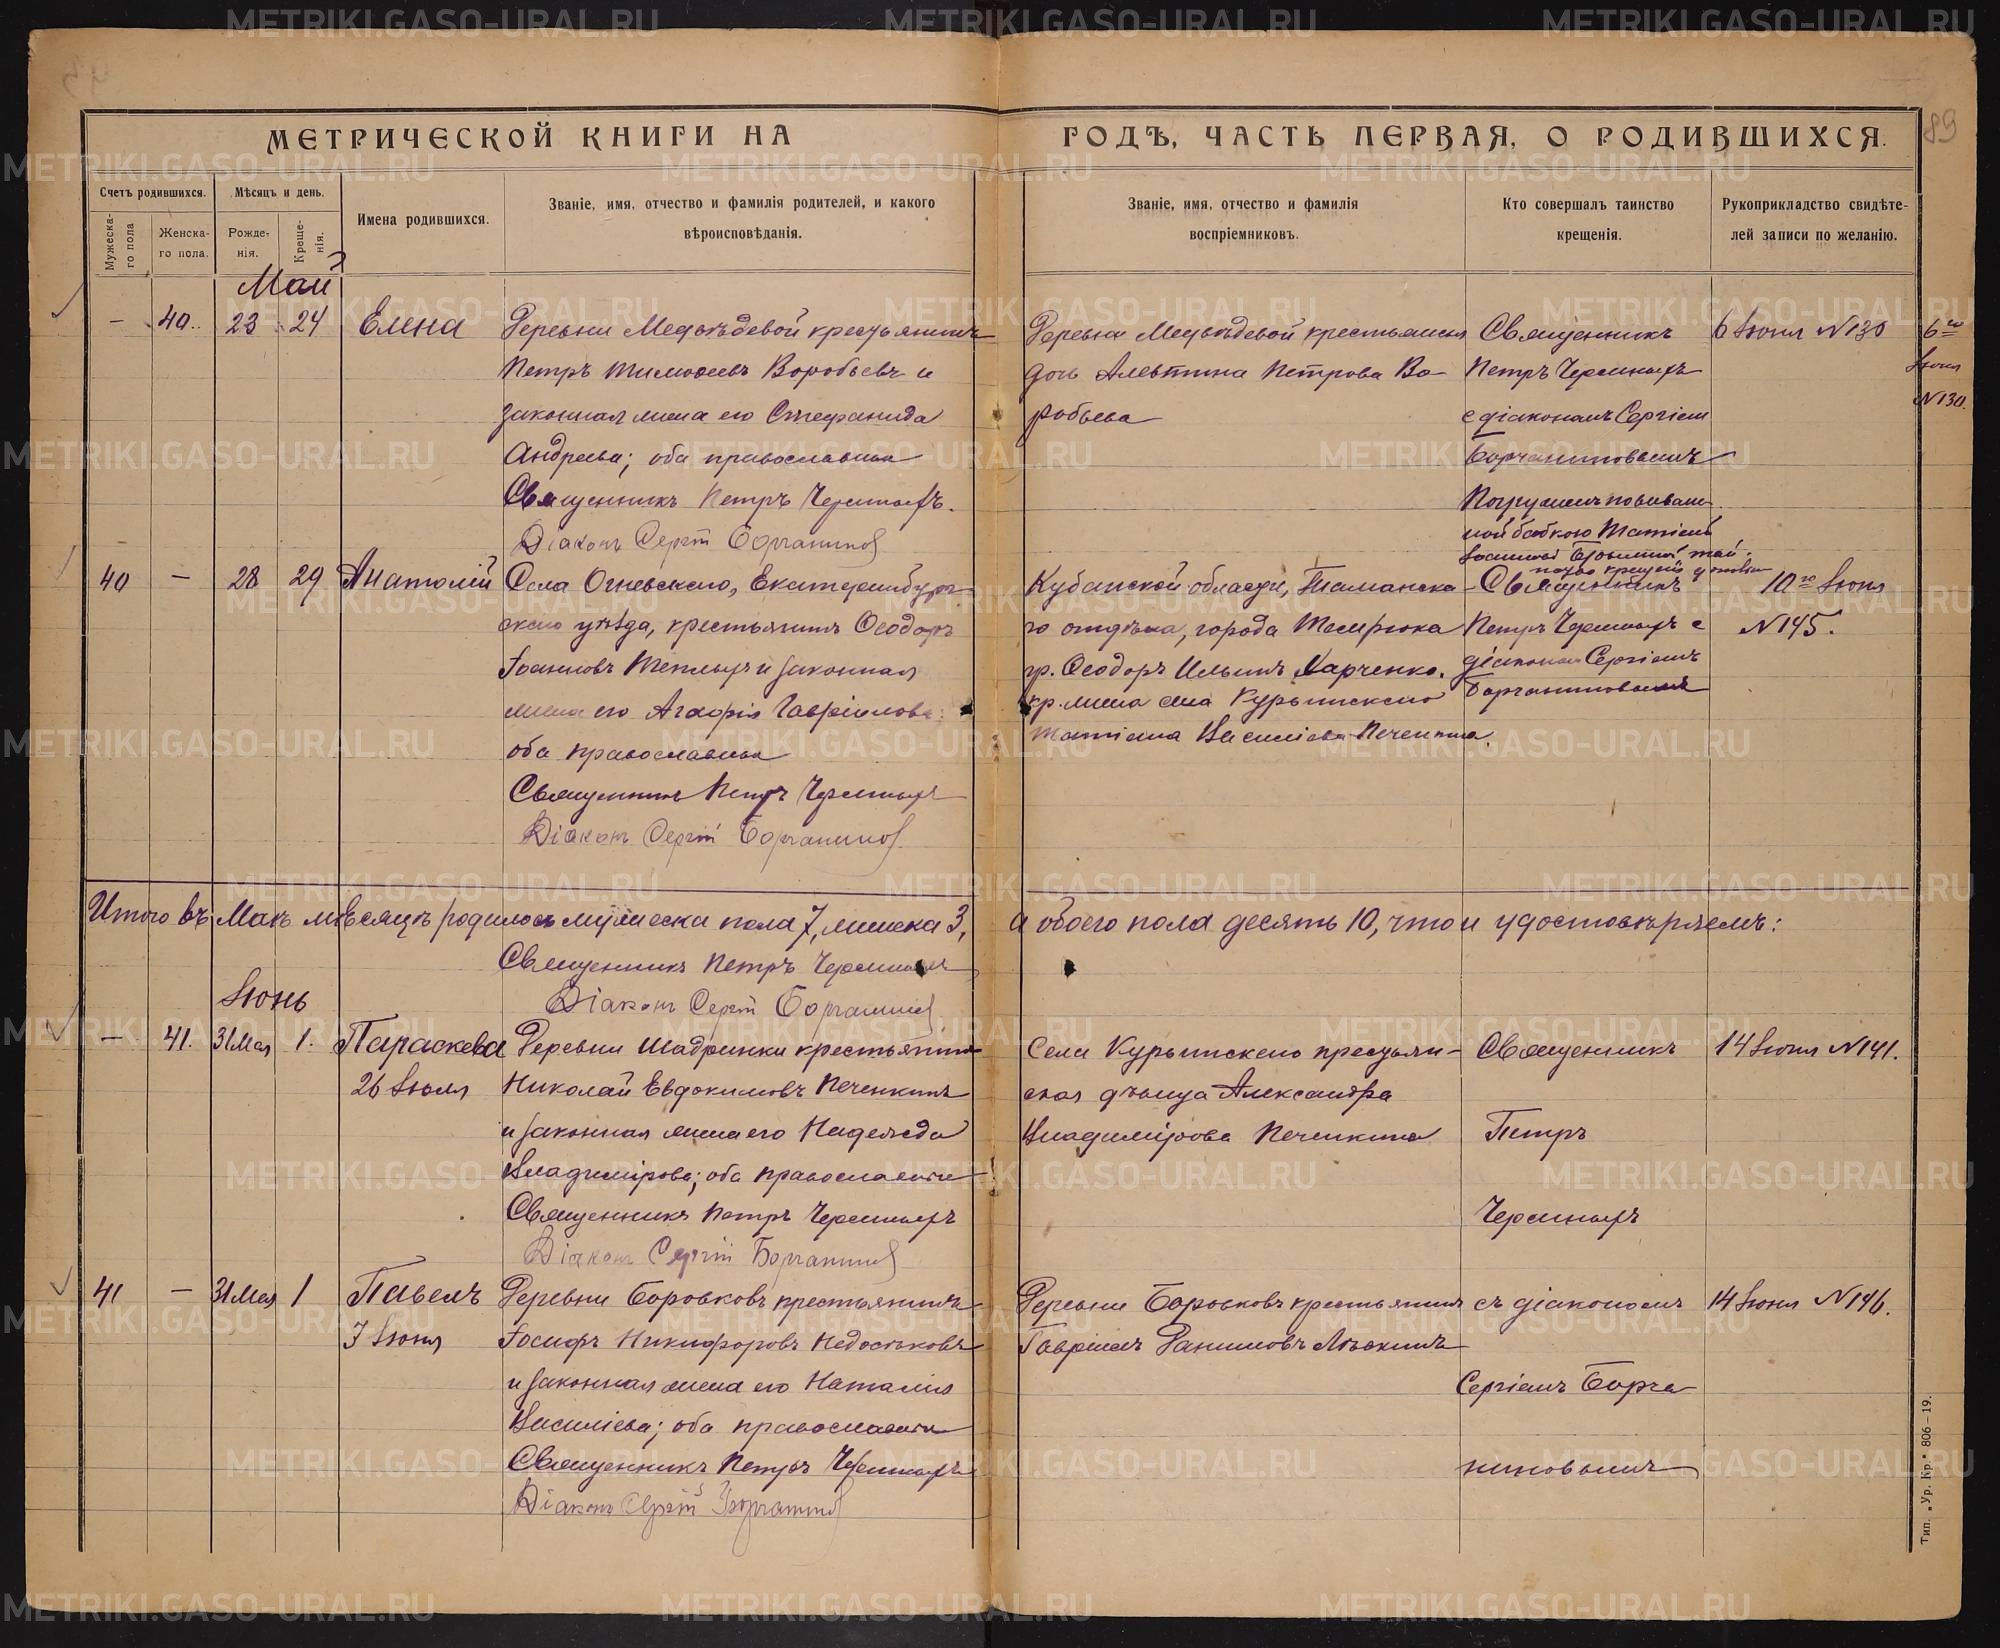 МЕТРИЧЕСКОЙ КНИГИ НА
ГОДЪ, ЧАСТЬ ПЕРВАЯ, О РОДИВШИХСЯ.
89
Счетъ родившихся.
Мѣсяцъ и день.
Имена родившихся.
Званіе, имя, отчество и фамилія родителей, и какого
вѣроисповѣданія.
Мужеска-
го пола
Женска-
го пола.
Рожде-
нія.
Креще-
нія.
Званіе, имя, отчество и фамилія
воспріемниковъ.
Кто совершалъ таинство
крещенія.
Рукоприкладство свидѣте-
лей записи по желанію.
Май
— 40 23 24 Елена
Деревни Медвѣдевой крестьянинъ
Петръ Тимофеевъ Воробьевъ и
законная жена его Стефанида
Андреева; оба православные
Священникъ Петръ Черемныхъ.
Діаконъ Сергій
Деревни Медвѣдевой крестьянина
дочь Алевтина Петрова Во-
робьева
Священникъ
Петръ Черемныхъ
с діакономъ Сергіем
6 Іюня №130
6го
Іюня
№130.
40 — 28 29 Анатолій
Села Огневского, Екатеринбург-
скаго уѣзда, крестьянинъ Ѳеодоръ
Іоанновъ Теплыхъ и законная
жена его Агафія Гавріилова;
оба православные
Священникъ Петръ Черемныхъ
Діаконъ Сергій
Кубанской области, Таманска-
го отдѣла, города Темрюка
гр. Ѳеодоръ Ильинъ Харченко.
кр. жена села Курьинскаго
Татіана Василіева Печенкина.
Священникъ
Петръ Черемныхъ с
діакономъ Сергіемъ
10го Іюня
№145.
Итого въ Маѣ мѣсяцѣ родилось мужеска пола 7, женска 3,
а обоего пола десять 10, что и удостовѣряемъ:
Священникъ Петръ Черемныхъ
Діаконъ Сергій
Іюнь
— 41. 31 Мая 1. Параскева
26 Іюля
Деревни Шадринки крестьянинъ
Николай Евдокимовъ Печенкинъ
и законная жена его Надежда
Владимірова; оба православные
Священникъ Петръ Черемныхъ
Діаконъ Сергій
Села Курьинскаго крестьян-
ская дѣвица Александра
Владимірова Печенкина
Священникъ
Петръ
Черемныхъ
14 Іюня №141.
41 — 31 Мая 1 Павелъ
Деревни Боровковъ крестьянинъ
Іосифъ Никифоровъ Недосѣковъ
и законная жена его Наталія
Василіева; оба православные
Священникъ Петръ Черемныхъ
Діаконъ Сергій
Деревни Боровковъ крестьянин
Гавріилъ
съ діакономъ
Сергіемъ
14 Іюня №146.
Тип. „Ур. Кр." 806—19.
METRIKI.GASO-URAL.RU